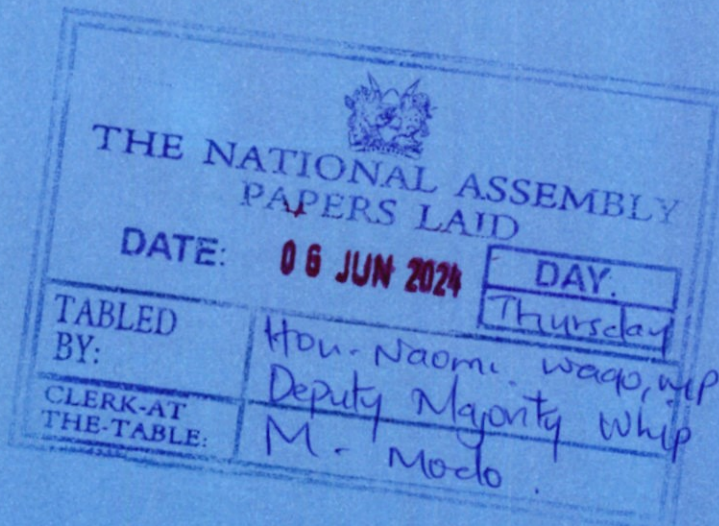 THE NATIONAL ASSEMBLY
PAPERS LAID
DATE: 06 JUN 2024
DAY.
Thursday
TABLED
BY:
Hon. Naomi Waqo, MP
Deputy Majority Whip
CLERK-AT
THE-TABLE:
M. Modo.